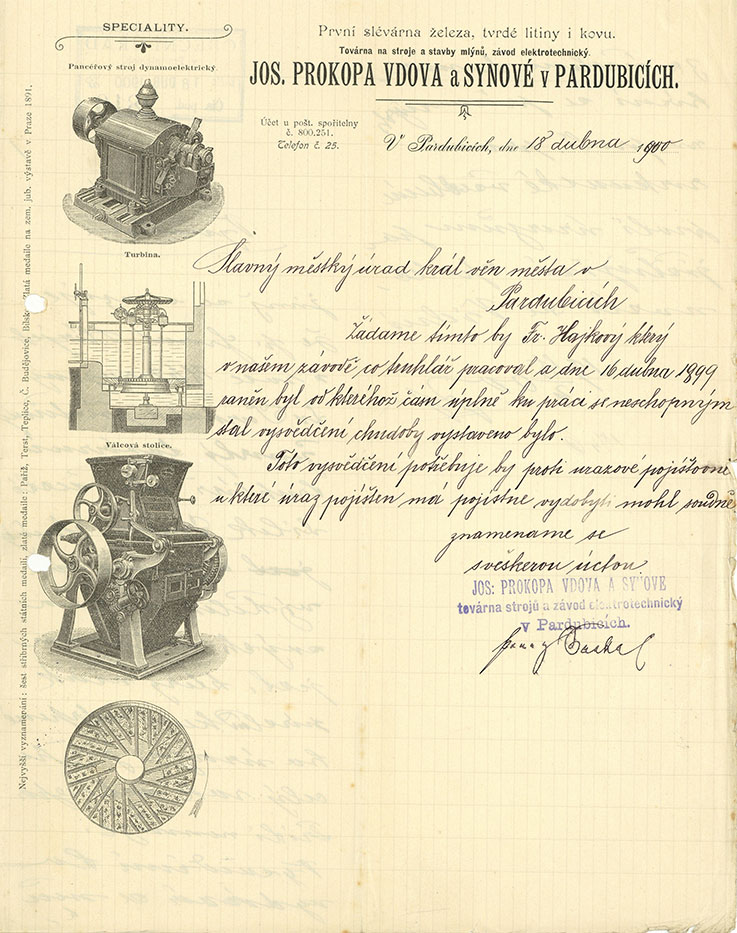 SPECIALITY.
Pancéřový stroj dynamoelektrický.
Turbina.
Válcová stolice.
Nejvyšší vyznamenání: šest stříbrných státních medailí, zlaté medaile: Paříž, Terst, Teplice, Č. Budějovice, Bílsko. Zlatá medaile na zem. jub. výstavě v Praze 1891.
První slévárna železa, tvrdé litiny i kovu.
Továrna na stroje a stavby mlýnů, závod elektrotechnický.
JOS. PROKOPA VDOVA a SYNOVÉ v PARDUBICÍCH.
Účet u pošt. spořitelny
č. 800.251.
Telefon č. 25.
V Pardubicích, dne 18 dubna 1900
Slavný městký úrad král věn města v
Pardubicích
Žádame tímto by Fr. Hajkový který
v našem závodě co truhlář pracoval a dne 16 dubna 1899
raněn byl od kteréhož času úplně ku práci se neschopným
stal vysvědčení chudoby vystaveno bylo.
Toto vysvědčení potřebuje by proti urazové pojišťovně
u které úraz pojištěn má pojistne vydobyti mohl soudně
znamenáme se
sveškerou úctou
JOS: PROKOPA VDOVA A SYNOVÉ
továrna strojů a závod elektrotechnický
v Pardubicích.